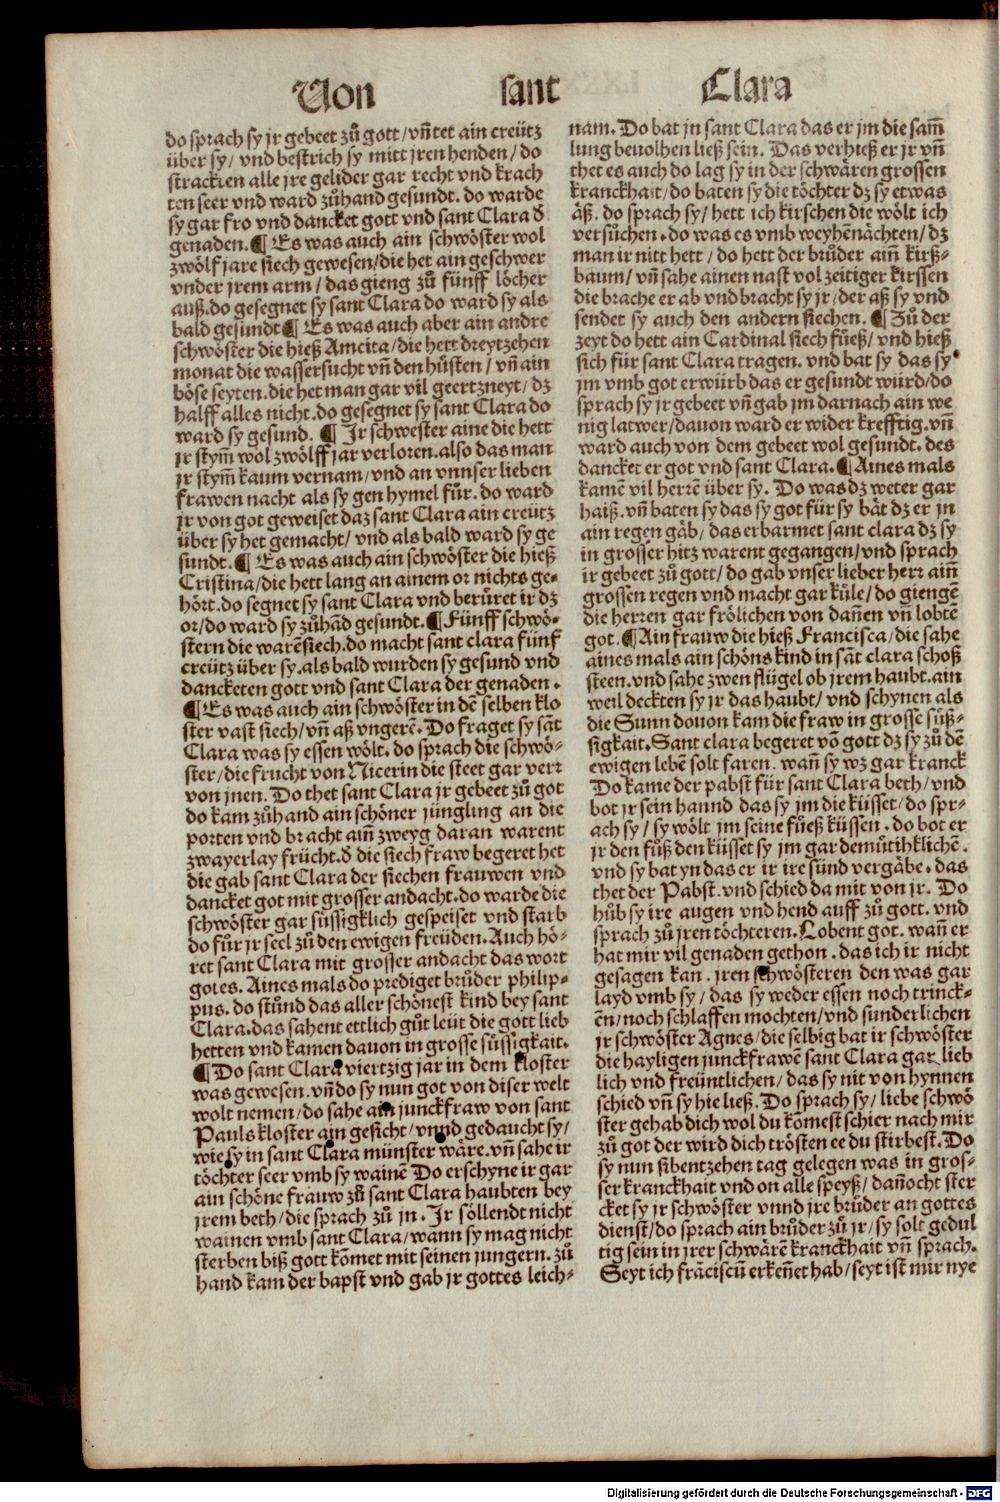 Von sant Clara
do sprach sy jr gebeet zů gott/vñ tet ain creütz
über sy/ vnd bestrich sy mitt jren henden/ do
strackten alle jre gelider gar recht vnd krach
ten seer vnd ward zůhand gesundt. do warde
sy gar fro vnd dancket gott vnd sant Clara d̕
genaden. ¶ Es was auch ain schwöster wol
zwölf jare siech gewesen/die het ain geschwer
vnder jrem arm/ das gieng zů fünff löcher
auß.do gesegnet sy sant Clara do ward sy als
bald gesundt ¶ Es was auch aber ain andre
schwöster die hieß Amcita/die hett dreytzehen
monat die wassersucht vñ den hůsten/ vñ ain
böse seyten.die het man gar vil geertzneyt/ dz
halff alles nicht.do gesegnet sy sant Clara do
ward sy gesund. ¶ Jr schwester aine die hett
jr stym̄ wol zwölff jar verloren.also das man
jr stym̄ kaum vernam/vnd an vnnser lieben
frawen nacht als sy gen hymel fůr. do ward
jr von got geweiset daz sant Clara ain creütz
über sy het gemacht/ vnd als bald ward sy ge
sundt. ¶ Es was auch ain schwöster die hieß
Cristina/die hett lang an ainem or nichts ge-
hört.do segnet sy sant Clara vnd berůret ir dz
or/do ward sy zůhãd gesundt. ¶ Fünff schwö-
stern die warẽ siech.do macht sant clara fünf
creütz über sy.als bald wurden sy gesund vnd
dancketen gott vnd sant Clara der genaden.
¶ Es was auch ain schwöster in dẽ selben klo
ster vast siech/vñ aß vngerẽ. Do fraget sy sãt
Clara was sy essen wölt. do sprach die schwö-
ster/die frucht von Nicerin die steet gar verr
von jnen. Do thet sant Clara jr gebeet zů got
do kam zůhand ain schöner jüngling an die
porten vnd bracht aiñ zweyg daran warent
zwayerlay frücht.d̕ die siech fraw begeret het
die gab sant Clara der siechen frauwen vnd
dancket got mit grosser andacht.do warde die
schwöster gar süssigklich gespeiset vnd starb
do fůr jr seel zů den ewigen freüden. Auch hö-
ret sant Clara mit grosser andacht das wort
gotes. Aines mals do prediget brůder philip-
pus. do stůnd das aller schönest kind bey sant
Clara.das sahent ettlich gůt leüt die gott lieb
hetten vnd kamen dauon in grosse süssigkait.
¶ Do sant Clara viertzig jar in dem kloster
was gewesen. vñ do sy nun got von diser welt
wolt nemen/do sahe ain junckfraw von sant
Pauls kloster ain gesicht/vnnd gedaucht sy/
wie sy in sant Clara münster wäre.vñ sahe ir
töchter seer vmb sy wainẽ Do erschyne ir gar
ain schöne frauw zů sant Clara haubten bey
jrem beth/die sprach zů jn. Jr söllendt nicht
wainen vmb sant Clara/wann sy mag nicht
sterben biß gott kõmet mit seinen jungern. zů
hand kam der bapst vnd gab jr gottes leich-
nam. Do bat jn sant Clara das er jm die sam̄
lung beuolhen ließ sein. Das verhieß er jr vñ
thet es auch do lag sy in der schwären grossen
kranckhait/do baten sy die töchter dz sy etwas
äß. do sprach sy/ hett ich kirschen die wölt ich
versůchen.do was es vmb weyhẽnächten/ dz
man ir nitt hett/ do hett der brůder aiñ kirß-
baum/ vñ sahe ainen nast vol zeitiger kirssen
die brache er ab vnd bracht sy jr/der aß sy vnd
sendet sy auch den andern siechen. ¶ Zů der
zeyt do hett ain Cardinal siech füeß/ vnd hieß
sich für sant Clara tragen. vnd bat sy das sy
jm vmb got erwürb das er gesundt würd/do
sprach sy jr gebeet vñ gab jm darnach ain we
nig latwer/dauon ward er wider krefftig.vñ
ward auch von dem gebeet wol gesundt. des
dancket er got vnd sant Clara. ¶ Aines mals
kamẽ vil herrẽ über sy. Do was dz weter gar
haiß. vñ baten sy das sy got für sy bät dz er jn
ain regen gäb/ das erbarmet sant clara dz sy
in grosser hitz warent gegangen/vnd sprach
ir gebeet zů gott/ do gab vnser lieber herr aiñ
grossen regen vnd macht gar kůle/ do giengẽ
die herren gar frölichen von dañen vñ lobtẽ
got. ¶ Ain frauw die hieß Francisca/die sahe
aines mals ain schöns kind in sãt clara schoß
steen.vnd sahe zwen flügel ob jrem haubt.ain
weil deckten sy jr das haubt/ vnd schynen als
die Sunn douon kam die fraw in grosse süß-
sigkait. Sant clara begeret võ gott dz sy zů dẽ
ewigen lebẽ solt faren. wañ sy wz gar kranck
Do kame der pabst für sant Clara beth/ vnd
bot jr sein hannd das sy jm die küsset/do spr-
ach sy/ sy wölt jm seine füeß küssen. do bot er
jr den fůß den küsset sy jm gar demůtihklichẽ.
vnd sy bat yn das er ir ire sünd vergäbe. das
thet der Pabst.vnd schied da mit von jr. Do
hůb sy ire augen vnd hend auff zů gott. vnd
sprach zů jren töchteren. Lobent got. wañ er
hat mir vil genaden gethon. das ich ir nicht
gesagen kan. jren schwösteren den was gar
layd vmb sy/ das sy weder essen noch trinck-
ẽn/noch schlaffen mochten/vnd sunderlichen
jr schwöster Agnes/die selbig bat ir schwöster
die hayligen junckfrawẽ sant Clara gar lieb
lich vnd freüntlichen/das sy nit von hynnen
schied vñ sy hie ließ. Do sprach sy/ liebe schwö
ster gehab dich wol du kõmest schier nach mir
zů got der wird dich trösten ee du stirbest. Do
sy nun sibentzehen tag gelegen was in gros-
ser kranckhait vnd on alle speyß/ dañocht ster
cket sy jr schwöster vnnd jre brůder an gottes
dienst/do sprach ain brůder zů jr/ sy solt gedul
tig sein in jrer schwärẽ kranckhait vñ sprach.
Seyt ich frãciscũ erkeñet hab/seyt ist mir nye
Digitalisierung gefördert durch die Deutsche Forschungsgemeinschaft - DFG